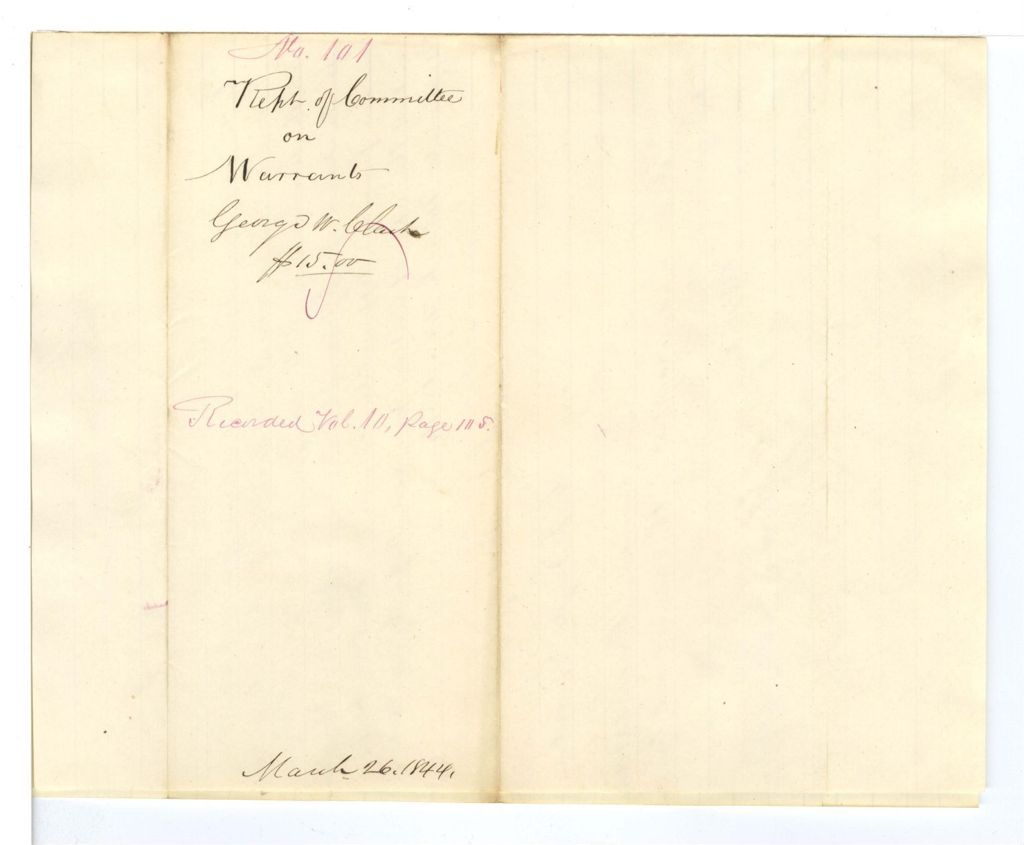 No. 101
Rept. of Committee
on
Warrants
George W. Clark
$15.00
Recorded Vol. 10, page 105.
March 26. 1844.